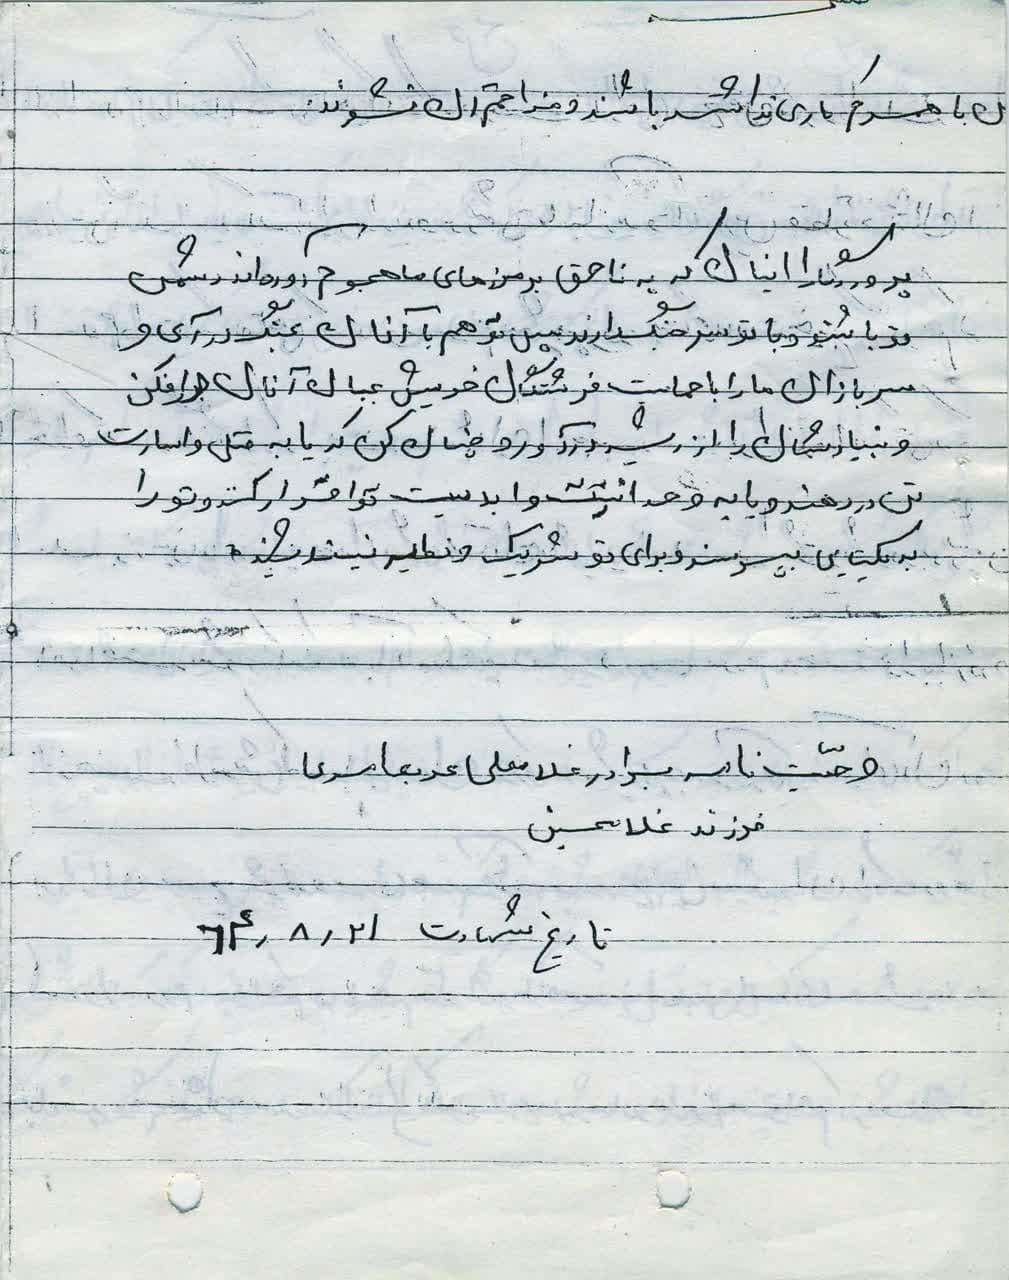 با همسرم کاری نداشته باشند و مزاحم آن نشوند
پروردگارا اینان که به ناحق بر مرزهای ما هجوم آورده‌اند دشمن
تو باشند و با تو سر جنگ دارند پس تو هم با آنان بجنگ در آی و
سربازان ما را با حمایت فرشتگان خویش بجان آنان درافکن
و بنیادشان را از ریشه درآور و چنان کن که یا به قتل و اسارت
تن در دهند و یا به وحدانیت و ابدیت تو اقرار کنند و تو را
به یکتایی بپرسند و برای تو شریک و نظیر نیندیشند.
وصیت نامه برادر غلامعلی عربعامری
فرزند غلامحسین
تاریخ شهادت ۲۱ر۸ر۶۴